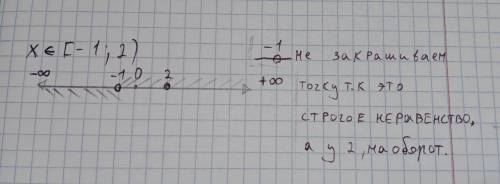 x ∈ [-1; 2)
-∞ -1 0 2 +∞
-1 не закрашиваем
точку т.к это
строгое неравенство,
а у 2, наоборот.